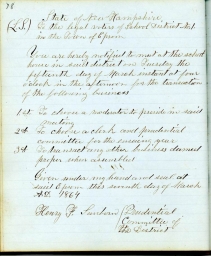 78
State of New Hampshire
(L.S.) To the legal voters of School District No 1
in the town of Epsom
You are hereby notified to meet at the school
house in said district on Tuesday the
fifteenth day of March instant at four
oclock in the afternoon for the transaction
of the following business
1st To choose a moderator to preside in said
meeting
2d To choose a clerk and prudential
committee for the ensuing year
3d To transact any other business deemed
proper when assembled
Given under my hand and seal at
said Epsom this seventh day of March
A.D. 1864
Henry F. Sanborn Prudential
Committee of
the District